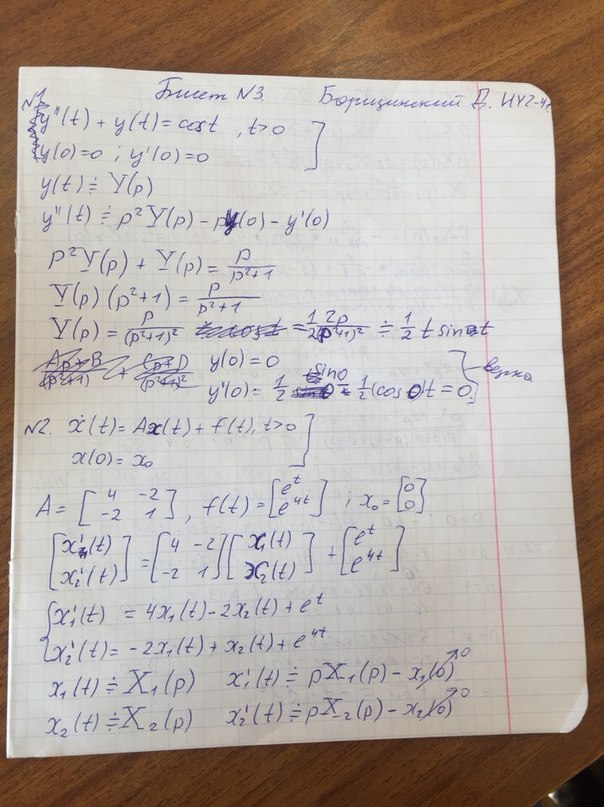 Билет №3 Борицинский Д. ИУ2-41
№1
y''(t) + y(t) = cost , t>0
y(0)=0 ; y'(0)=0
y(t) ≑ Y(p)
y''(t) ≑ p²Y(p) - py(0) - y'(0)
p²Y(p) + Y(p) = p/(p²+1)
Y(p) (p²+1) = p/(p²+1)
Y(p) = p/(p²+1)² = 1/2 2p/(p²+1)² ≑ 1/2 t sint
y(0) = 0
y'(0) = 1/2 sin0 + 1/2 (cos0)t = 0
верно
№2. ẋ(t) = Ax(t) + f(t), t>0
x(0) = x₀
A = [4 -2; -2 1] , f(t) = [eᵗ; e⁴ᵗ] ; x₀ = [0; 0]
[x₁'(t); x₂'(t)] = [4 -2; -2 1] [x₁(t); x₂(t)] + [eᵗ; e⁴ᵗ]
x₁'(t) = 4x₁(t) - 2x₂(t) + eᵗ
x₂'(t) = -2x₁(t) + x₂(t) + e⁴ᵗ
x₁(t) ≑ X₁(p) x₁'(t) ≑ pX₁(p) - x₁(0) 0
x₂(t) ≑ X₂(p) x₂'(t) ≑ pX₂(p) - x₂(0) 0